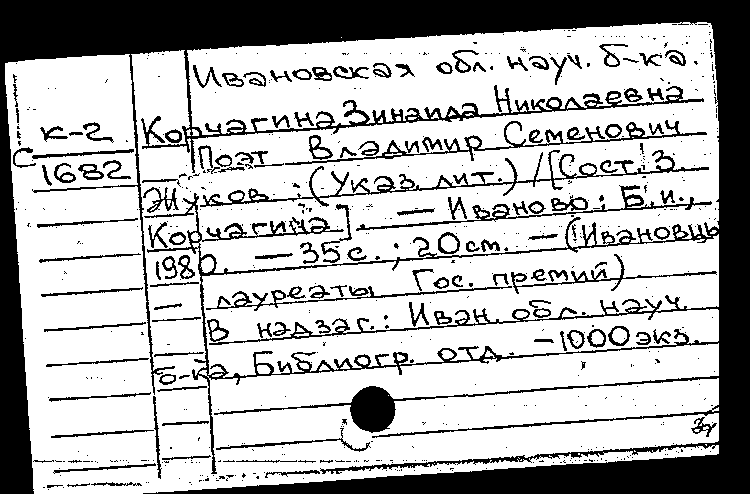 Ивановская обл. науч. б-ка.
К-2
С 1682
Корчагина, Зинаида Николаевна
Поэт Владимир Семенович
Жуков : (Указ. лит.) / [Сост. З.
Корчагина]. — Иваново : Б.и.,
1980. — 35 с. ; 20 см. — (Ивановцы
— лауреаты Гос. премий)
В надзаг.: Иван. обл. науч.
б-ка, Библиогр. отд. - 1000 экз.